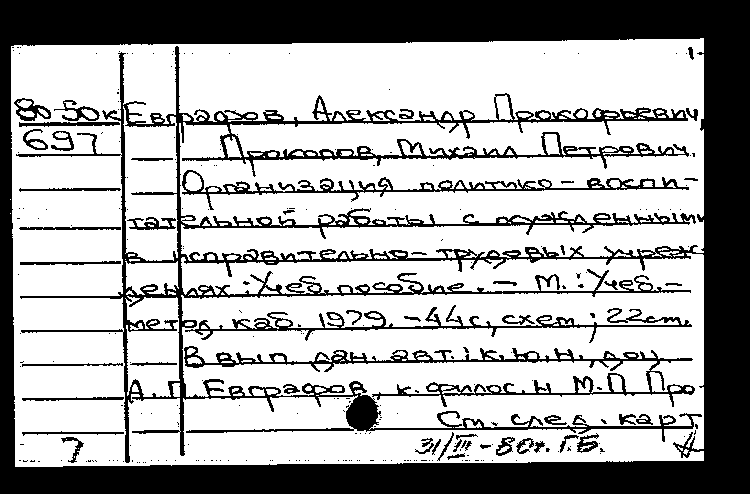 1-
80-50к Евграфов, Александр Прокофьевич,
697 Прокопов, Михаил Петрович.
Организация политико-воспи-
тательной работы с осужденными
в исправительно-трудовых учреж-
дениях: Учеб. пособие. - М.: Учеб.-
метод. каб., 1979. - 44с., схем.; 22см.
В вып. дан. авт.: к.ю.н., доц.
А. П. Евграфов, к. филос. н. М.П. Про-
См. след. карт.
7 31/III-80г. Г.Б.